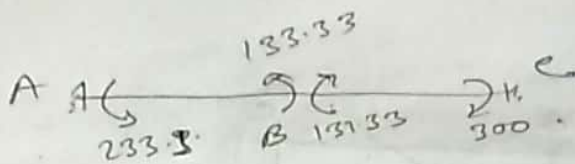 133.33
A
233.3. B 133.33 300.
C